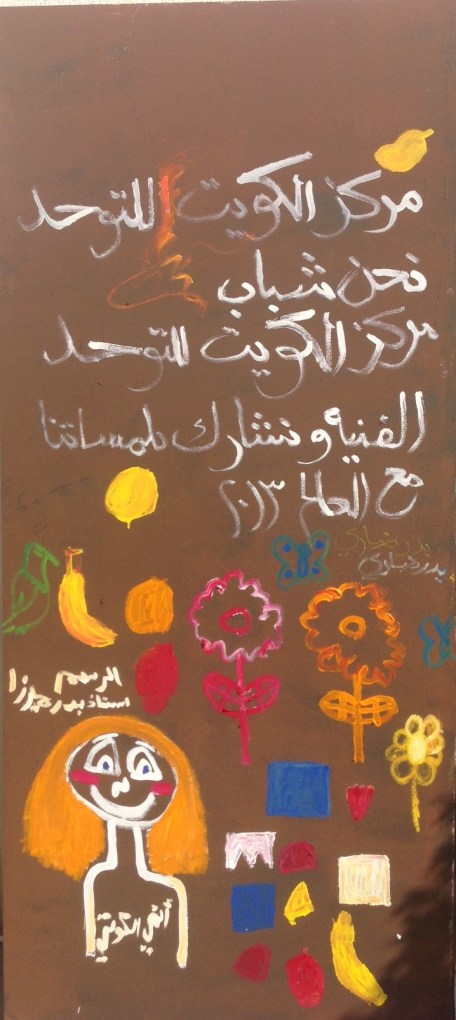 مركز الكويت للتوحد
نحن شباب
مركز الكويت للتوحد
الفنيه ونشارك بلمساتنا
مع العالم ٢٠١٣
بدر خباري
بدر خباري
الرسم
استاذ بدر ميرزا
الكويتي